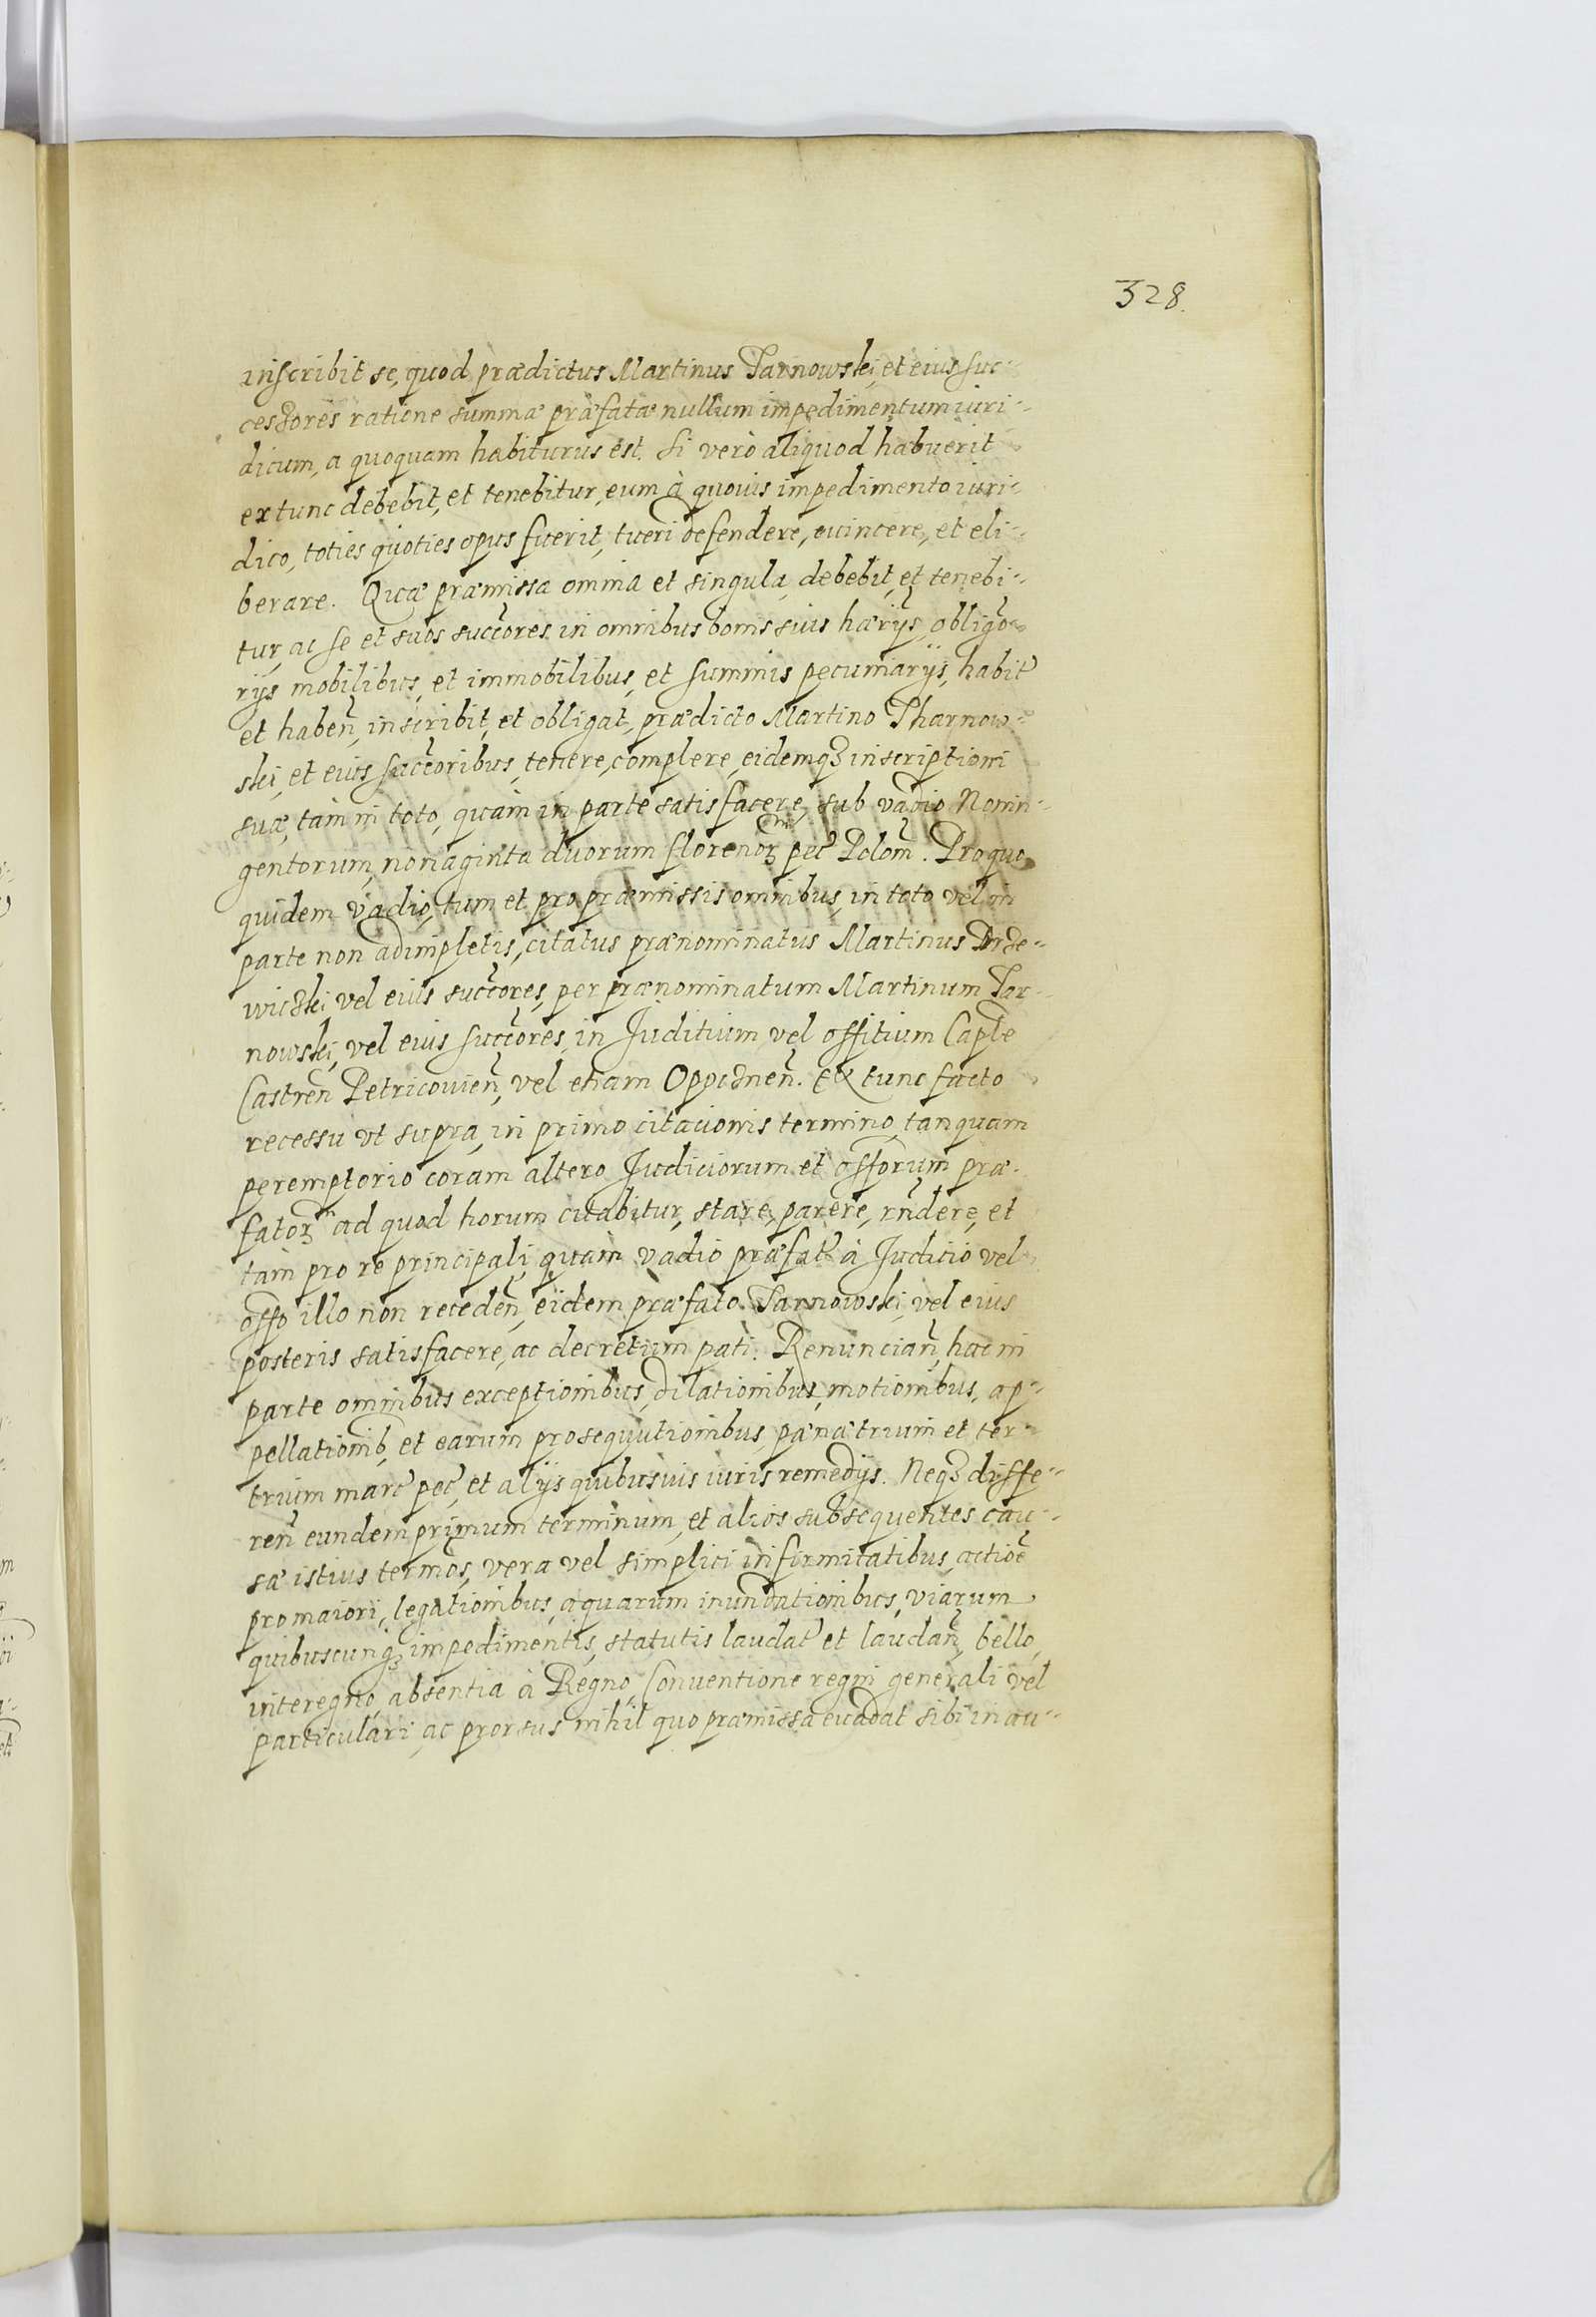 328.
inscribit se, quod prædictus Martinus Tarnowski, et eius suc-
cessores ratione summæ præfatæ nullum impedimentum iuri-
dicum, a quoquam habiturus est. Si verò aliquod habuerit
extunc debebit, et tenebitur, eum à quouis impedimento iuri-
dico, toties quoties opus fuerit, tueri defendere, euincere, et eli-
berare. Quæ præmissa omnia et singula, debebit, et tenebi-
tur, ac se et suos succ̃ores in omnibus bonis suis hærijs, obligõ-
rijs mobilibus, et immobilibus, et summis pecuniarijs, habit̃
et habeñ, inscribit, et obligat, prædicto Martino Tharnow-
ski, et eius succ̃oribus, tenere, complere, eidemqꝫ inscriptioni
suæ, tàm in toto, quàm in parte satisfacere, sub vadio Nonin-
gentorum, nonaginta duorum florenoꝝ pec̃ Poloñ. Pro quo
quidem vadio, tum et pro præmissis omnibus, in toto vel in
parte non adimpletis, citatus prænominatus Martinus
vel eius succ̃ores, per prænominatum Martinum Tar-
nowski, vel eius succ̃ores, in Juditium vel offitium Caple
Castreñ Petricouieñ, vel etiam Oppozneñ. Ex tunc facto
recessu vt supra, in primo citacionis termino, tanquam
peremptorio coram altero Judiciorum et offõrum præ-
fatoꝝ ad quod horum citabitur, stare, parere, rñdere, et
tàm pro re principali, quàm vadio præfat̃ à Juditio vel
offõ illo non recedeñ, eidem præfato Tarnowski, vel eius
posteris satisfacere, ac decretum pati. Renunciañ, hac in
parte omnibus exceptionibus, dilationibus, motionibus, ap-
pellationib, et earum prosequutionibus, pænæ trium et ter-
trium marc̃ pec̃, et alijs quibusuis iuris remedijs. Neqꝫ diffe-
reñ eundem primum terminum, et alios subsequentes cau-
sæ istius termõs, vera vel simplici infirmitatibus, actioẽ
pro maiori, legationibus, aquarum inundationibus, viarum
quibuscunqꝫ impedimentis, statutis laudat̃ et laudañ, bello,
interegno, absentia à Regno, Conuentione regni generali vel
particulari, ac prorsus nihil quo præmissa euadat sibi in au-